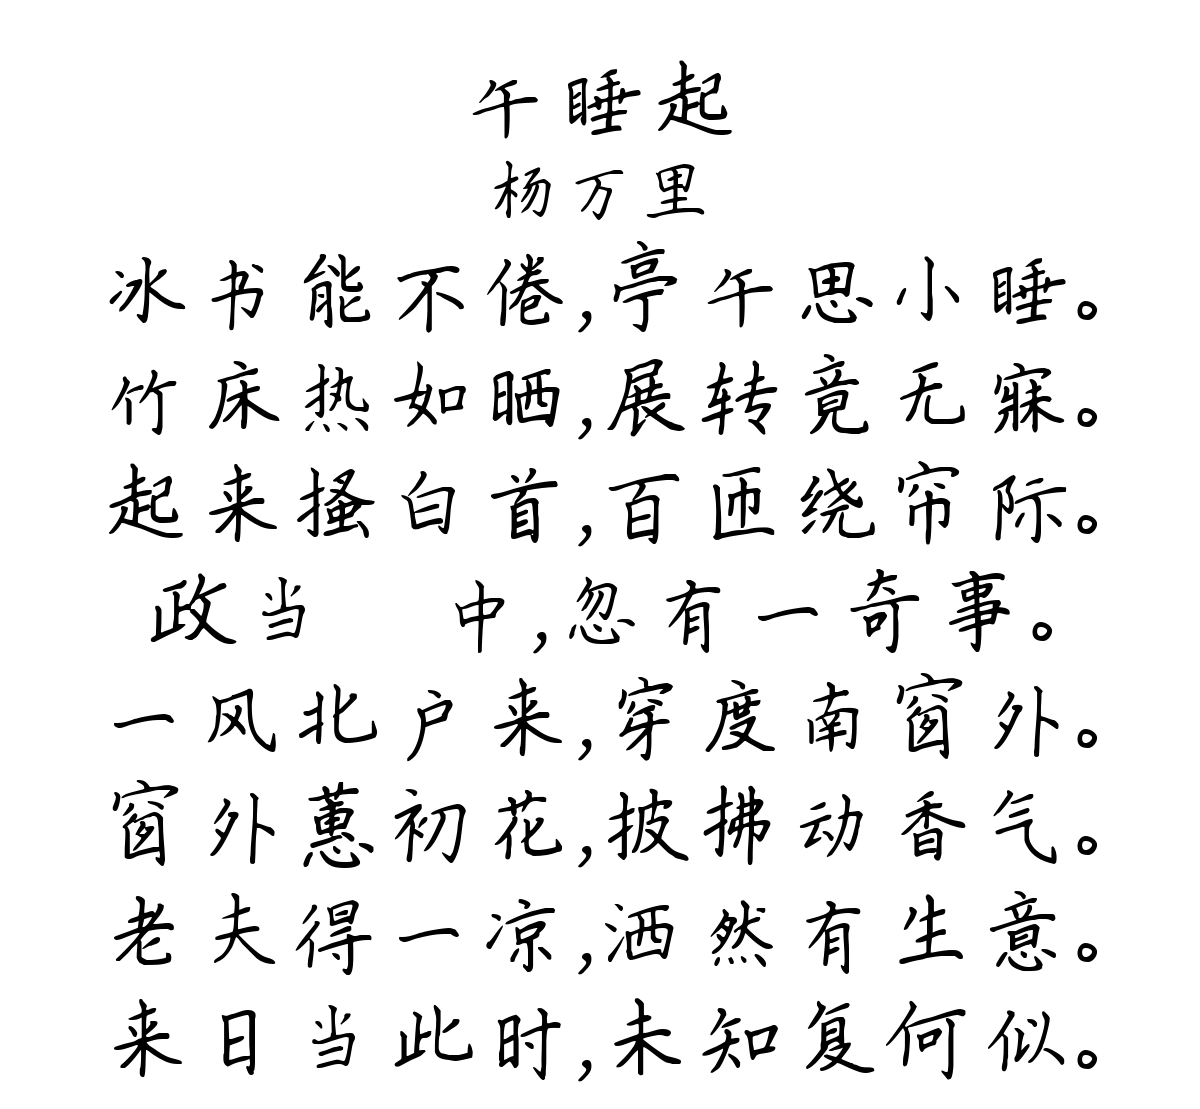 午睡起
杨万里
冰书能不倦,亭午思小睡。
竹床热如晒,展转竟无寐。
起来搔白首,百匝绕帘际。
政当 中,忽有一奇事。
一风北户来,穿度南窗外。
窗外蕙初花,披拂动香气。
老夫得一凉,洒然有生意。
来日当此时,未知复何似。